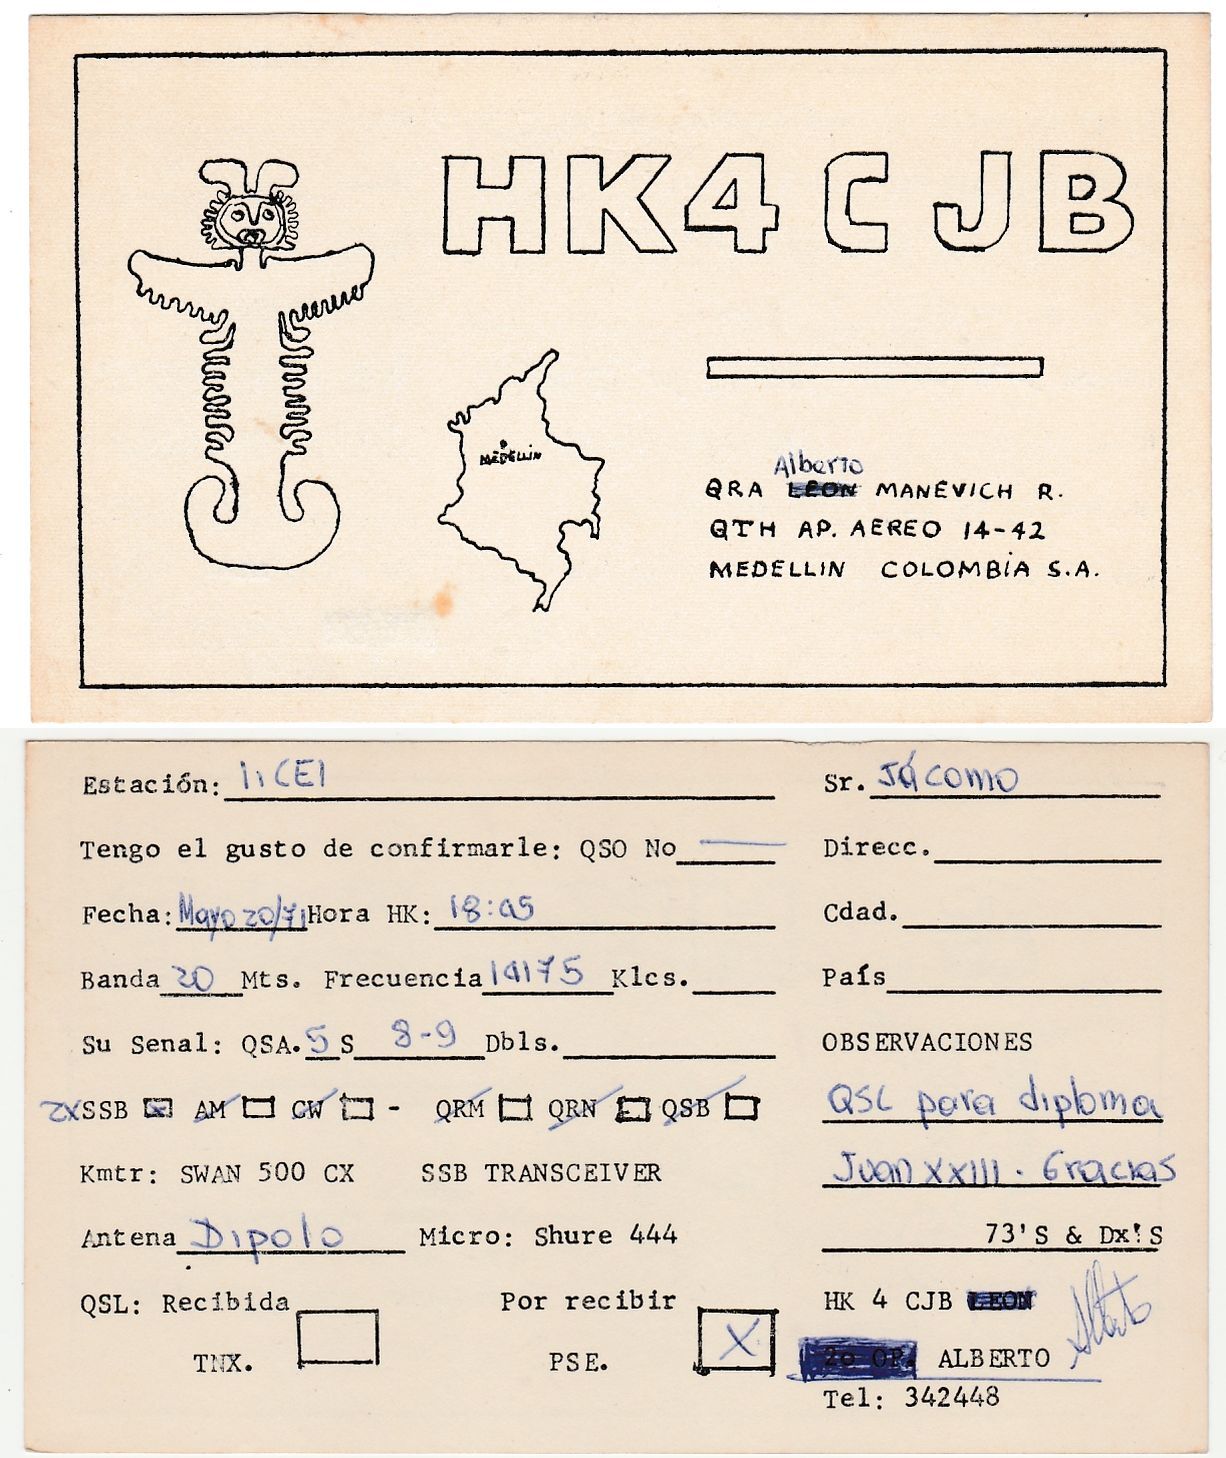 HK4CJB
MEDELLIN
Alberto
QRA LEON MANEVICH R.
QTH AP. AEREO 14-42
MEDELLIN COLOMBIA S.A.
Estación: I1CEI Sr. Jácomo
Tengo el gusto de confirmarle: QSO No — Direcc.
Fecha: Mayo 20/71 Hora HK: 18:05 Cdad.
Banda 20 Mts. Frecuencia 14175 Klcs. País
Su Senal: QSA. 5 S 8-9 Dbls. OBSERVACIONES
2X SSB X AM CW - QRM QRN QSB QSL para diploma
Kmtr: SWAN 500 CX SSB TRANSCEIVER Juan XXIII. Gracias
Antena Dipolo Micro: Shure 444 73'S & Dx'S
QSL: Recibida Por recibir HK 4 CJB LEON Alberto
TNX. PSE. X 2o OP. ALBERTO
Tel: 342448